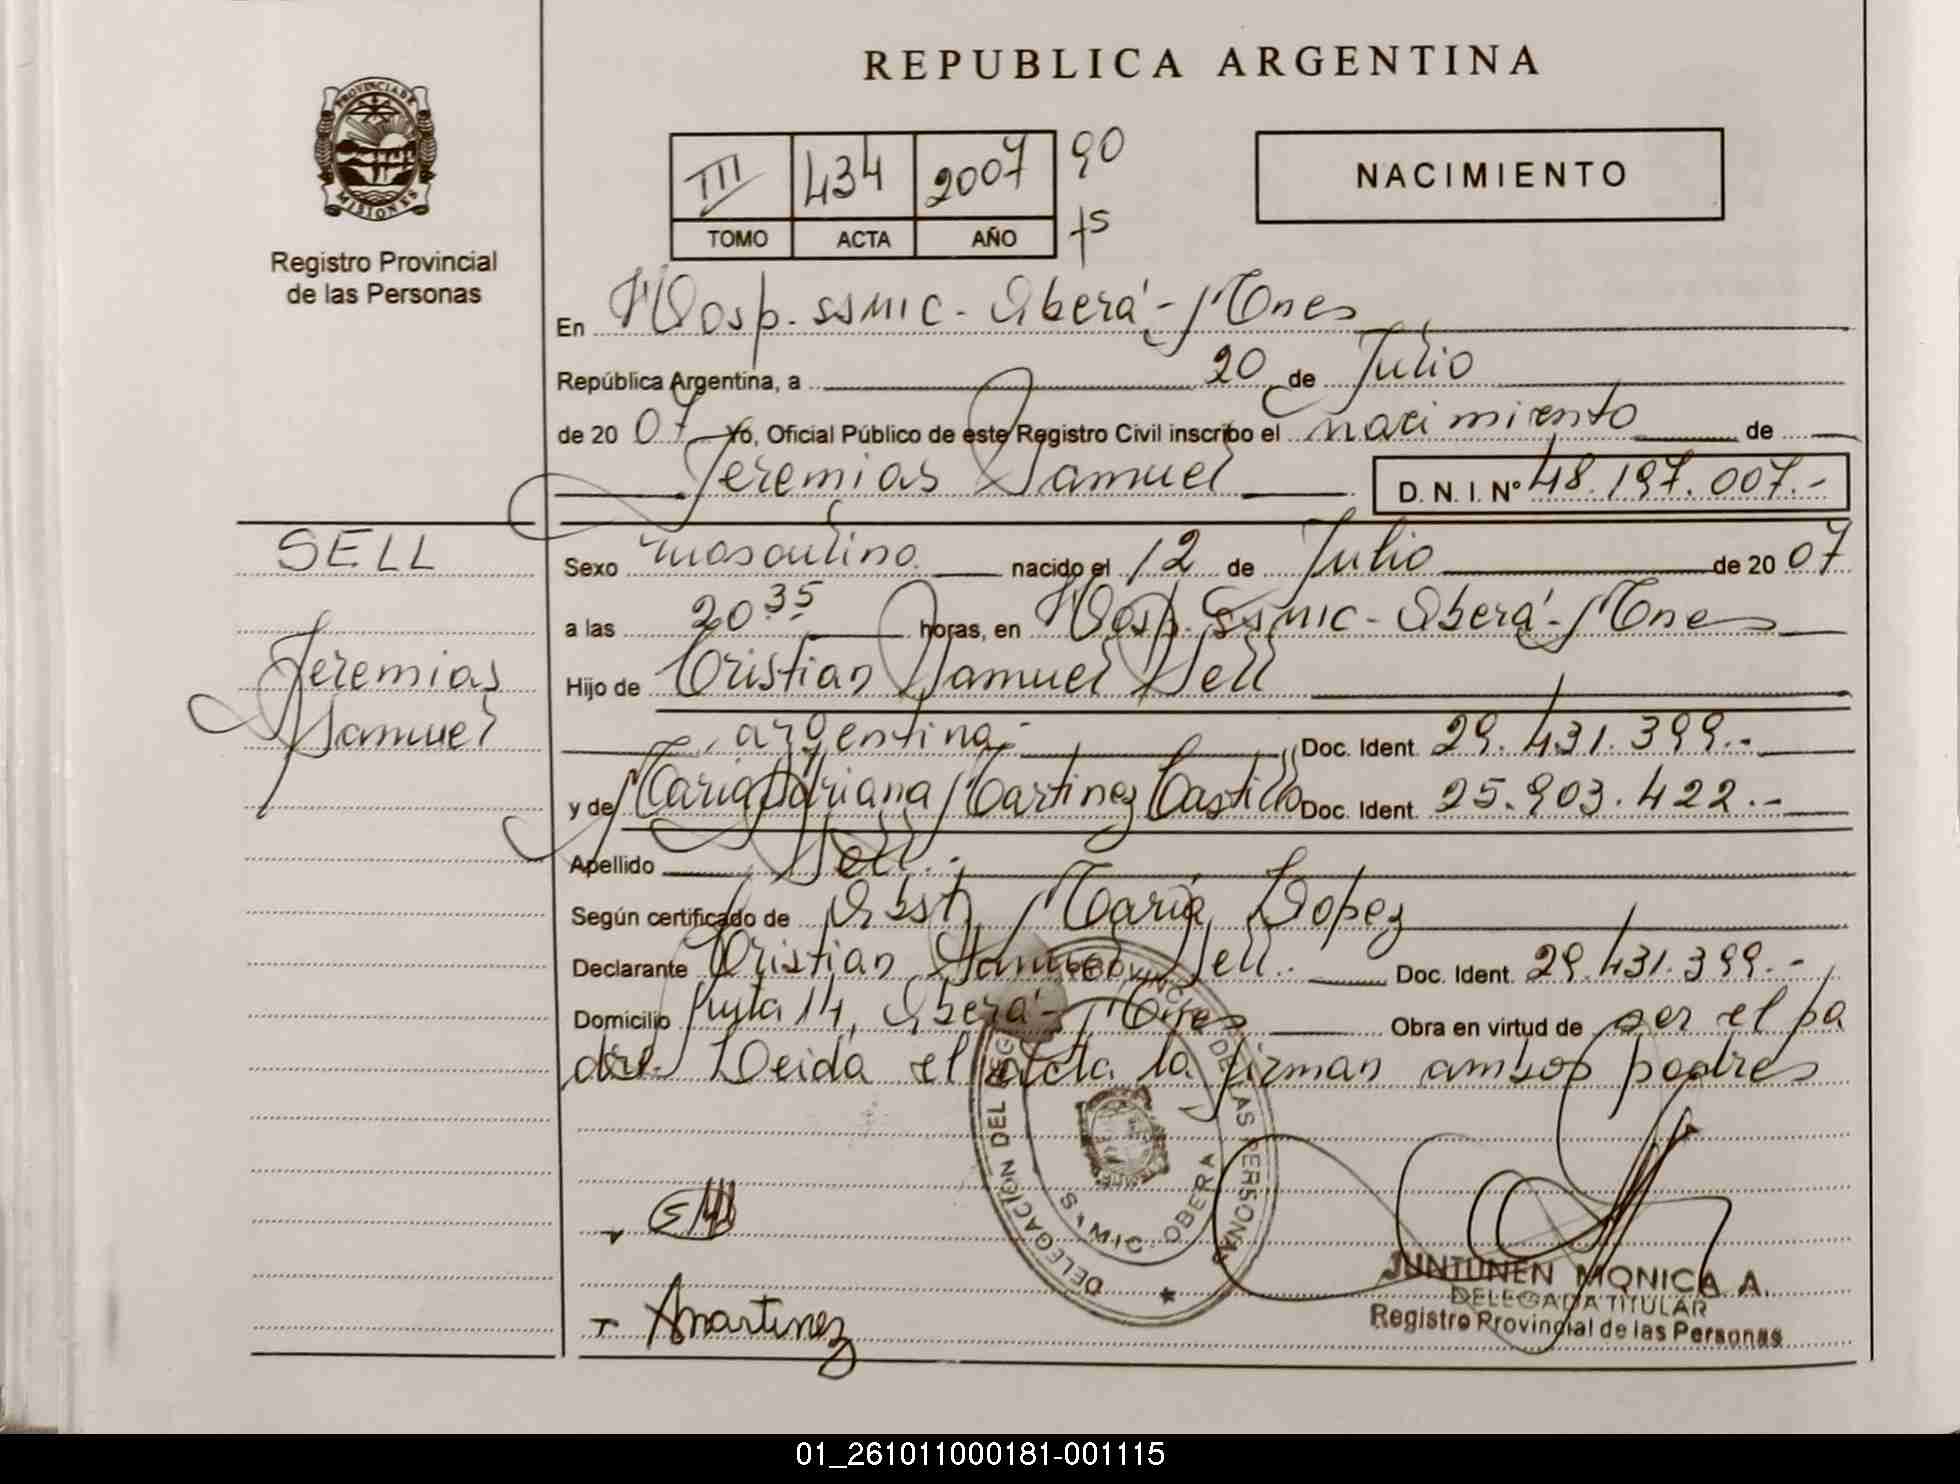 REPUBLICA ARGENTINA
PROVINCIA DE
MISIONES
Registro Provincial
de las Personas
III 434 2007 90
TOMO ACTA AÑO fs
NACIMIENTO
En Hosp. SSMIC - Oberá - Mnes
República Argentina, a 20 de Julio
de 20 07 Yo, Oficial Público de este Registro Civil inscribo el nacimiento de
Jeremias Samuel D. N. I. Nº 48.197.007.-
SELL
Jeremias
Samuel
Sexo masculino nacido el 12 de Julio de 20 07
a las 20.35 horas, en Hosp. SSMIC - Oberá - Mnes
Hijo de Cristian Samuel Sell
argentina.- Doc. Ident. 29.431.399.-
y de Maria Adriana Martinez Castillo Doc. Ident. 25.903.422.-
Apellido Sell.-
Según certificado de Obst. Maria Lopez
Declarante Cristian Samuel Sell. Doc. Ident. 29.431.399.-
Domicilio Ruta 14, Oberá - Mnes Obra en virtud de ser el pa
dre. Leida el acta la firman ambos padres
DELEGACIÓN DEL REG. PROVINCIAL DE LAS PERSONAS
S. MIC. OBERA
Amartinez
JUNTUNEN MONICA A.
DELEGADA TITULAR
Registro Provincial de las Personas
01_261011000181-001115